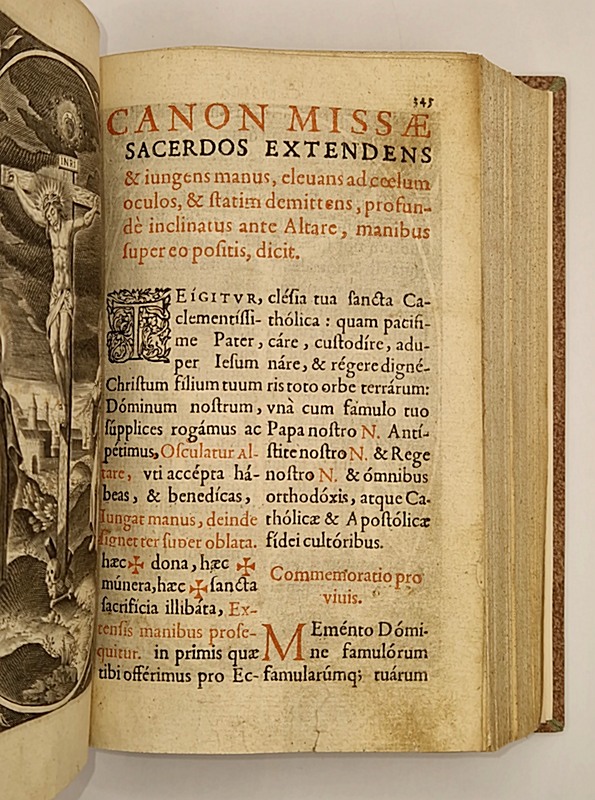 INRI
345
CANON MISSÆ
SACERDOS EXTENDENS
& iungens manus, eleuans ad cœlum
oculos, & ſtatim demittens, profun-
dè inclinatus ante Altare, manibus
ſuper eo poſitis, dicit.
TEÍGITVR,
clementiſſi-
me Pater,
per Ieſum
Chriſtum filium tuum
Dóminum noſtrum,
ſúpplices rogámus ac
pétimus, Oſculatur Al-
tare, vti accépta há-
beas, & benedícas,
Iungat manus, deinde
ſignet ter ſuper oblata.
hæc ✠ dona, hæc ✠
múnera, hæc ✠ ſancta
ſacrifícia illibáta, Ex-
tenſis manibus proſe-
quitur. in primis quæ
tibi offérimus pro Ec-
cléſia tua ſancta Ca-
thólica : quam pacifi-
cáre, cuſtodíre, adu-
náre, & régere digné-
ris toto orbe terrárum:
vnà cum fámulo tuo
Papa noſtro N. Antí-
ſtite noſtro N. & Rege
noſtro N. & ómnibus
orthodóxis, atque Ca-
thólicæ & Apoſtólicæ
fídei cultóribus.
Commemoratio pro
viuis.
MEménto Dómi-
ne famulórum
famularúmq; tuárum